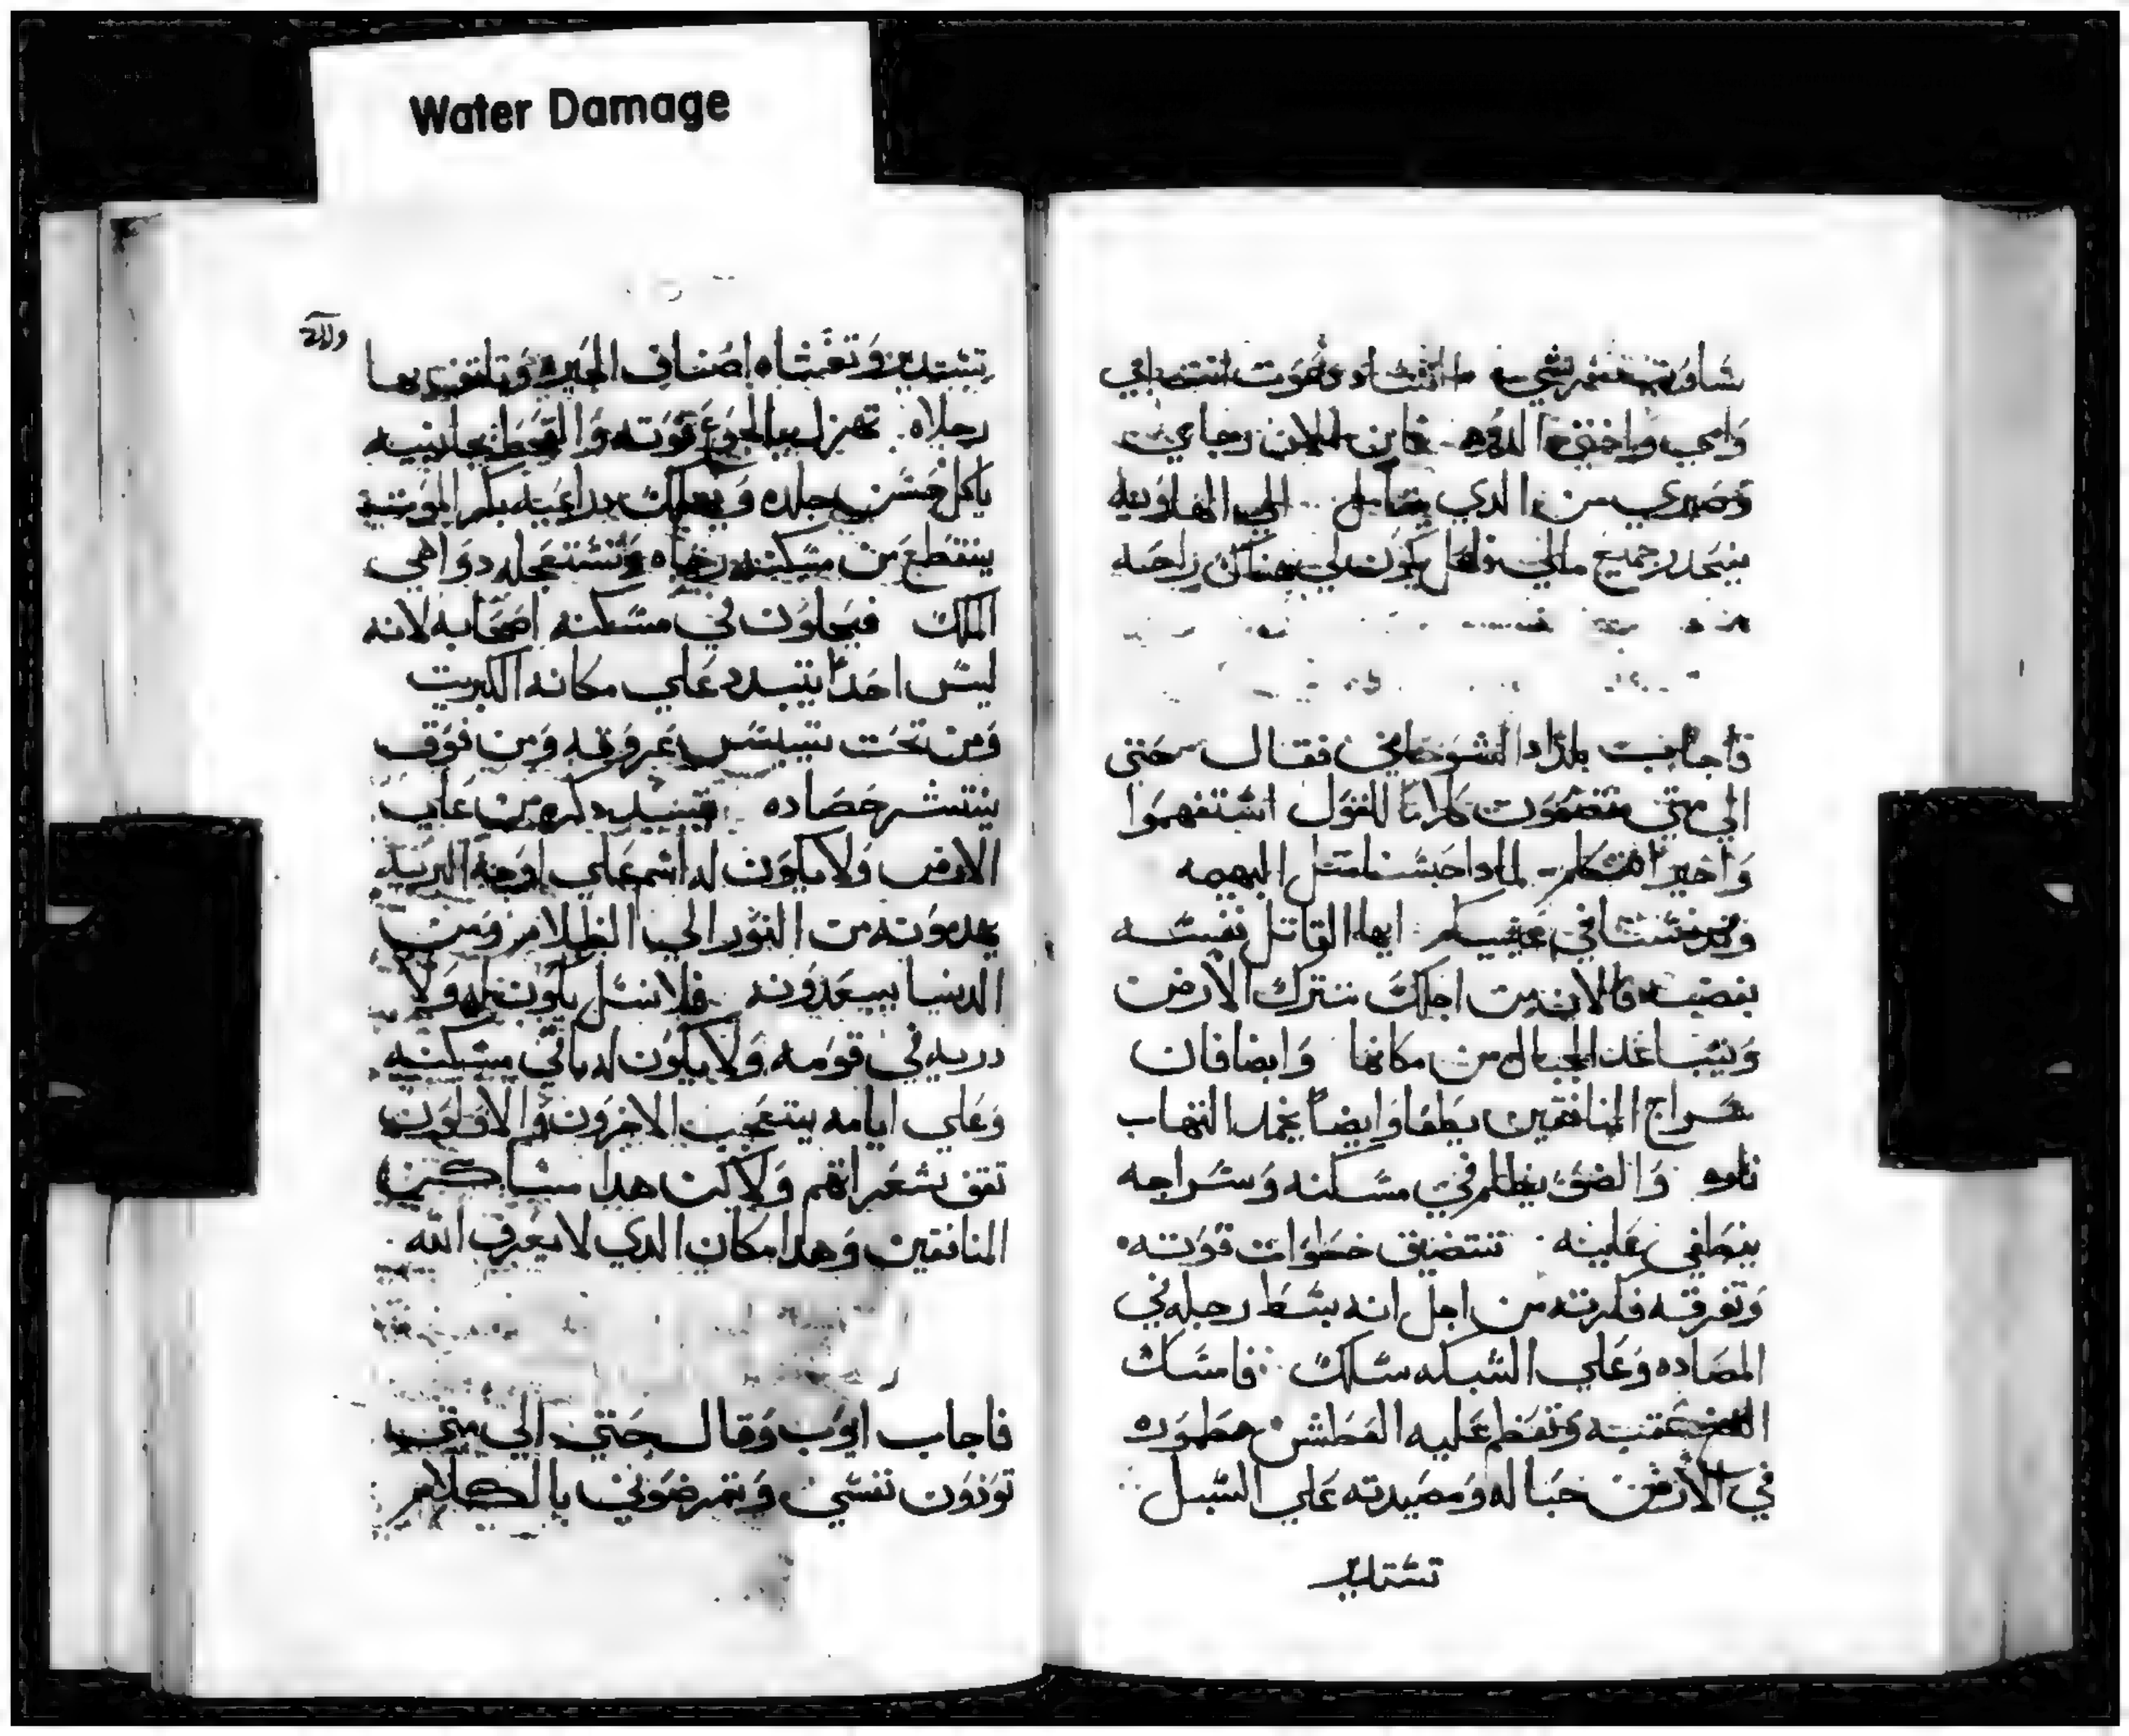 Water Damage
وامي واختي الدود فاين الان رجاي
وصبري من الدي يتامل الي الهاويه
ينحدر جميع مالي فهل يكون لي هناك راحه
فاجاب بلداد الشوحاني فقال حتى
الي متي تنصبون كلاما للقول استفهموا
واخيرا نتكلم لمادا حسبنا مثل البهيمه
ايها القاتل نفسه
بغضبه فالان من اجلك تترك الارض
وتتباعد الجبال من مكانها وايضا فان
سراج المنافقين يطفا وايضا يخمد التهاب
ناره والضو يظلم في مسكنه وسراجه
ينطفي عليه تنتضيق خطوات قوته
وتغرقه فكرته من اجل انه بسط رجله في
المصاده وعلي الشبكه سلك فامسك
الفخ عقبه وتعظم عليه العطش مطموره
في الارض حباله ومصيدته علي السبل
تستدير
تستدير وتغشاه اصناف الحيره وتلتف بها
رجلاه تهزل بالجوع قوته والقحط بجانبيه
ياكل حسن جلده ويهلك دراعيه بكر الموت
ينقطع من مسكنه رجاه وتستعجله دواهي
الملك فيحلون في مسكنه اصحابه لانه
ليس احدا يتبدد علي مكانه الكبريت
ومن تحت تيبس عروقه ومن فوق
ينتشر حصاده يبيد دكره من علي
الارض ولا يكون له اسم علي اوجه البريه
يهدمونه من النور الي الظلام ومن
الدنيا يبعدونه فلا نسل يكون له ولا
دريه في قومه ولا يكون له باقي مسكنه
وعلي ايامه يتعجب الاخرون والاولون
تقف شعراتهم ولاكن هدا مساكن
المنافقين وهدا مكان الدي لا يعرف الله
فاجاب ايوب وقال حتي الي متي
تودون نفسي وتمرضوني بالكلام